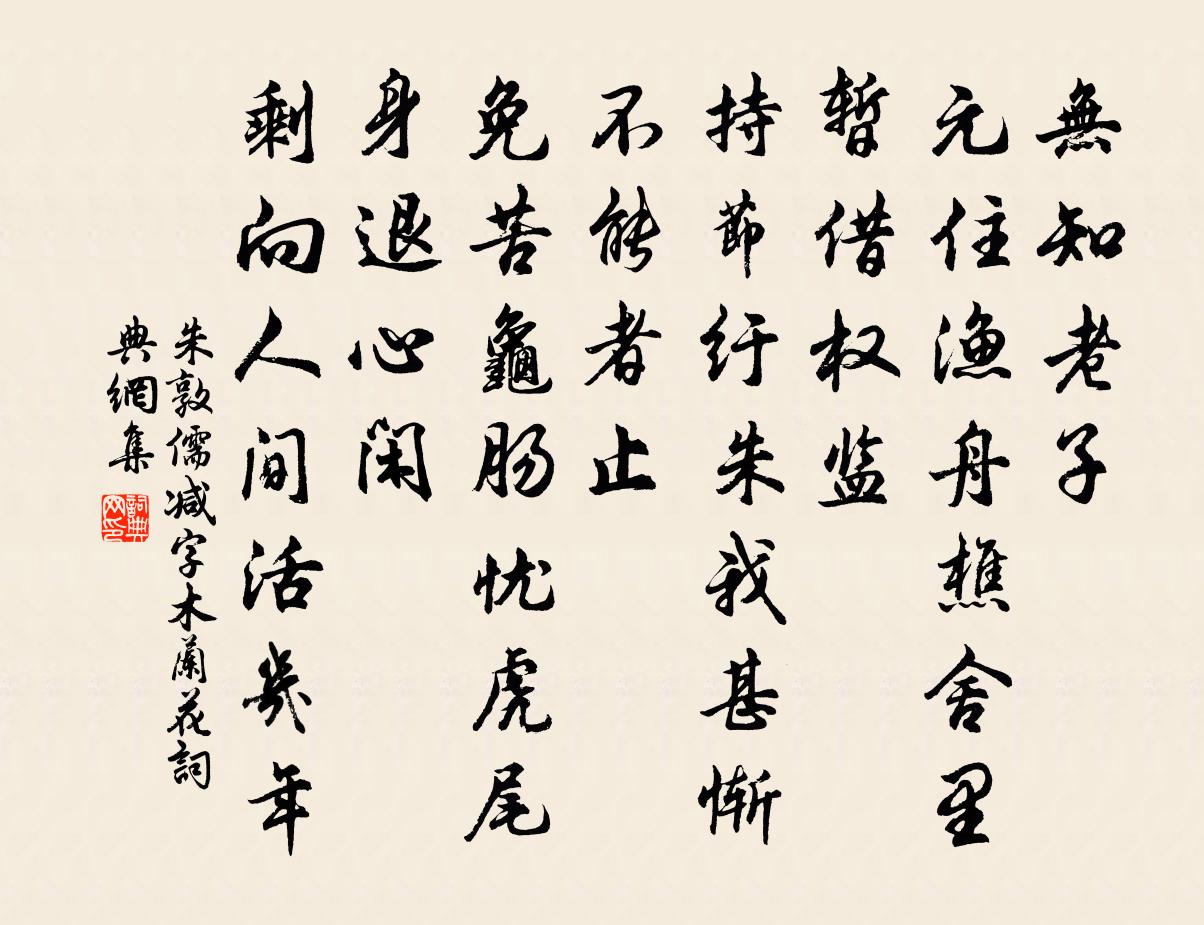 無知老子
元住漁舟樵舍里
暂借权监
持節纡朱我甚慚
不能者止
免苦龜肠忧虎尾
身退心闲
剩向人间活幾年
朱敦儒减字木蘭花詞
典網集
詞典网印